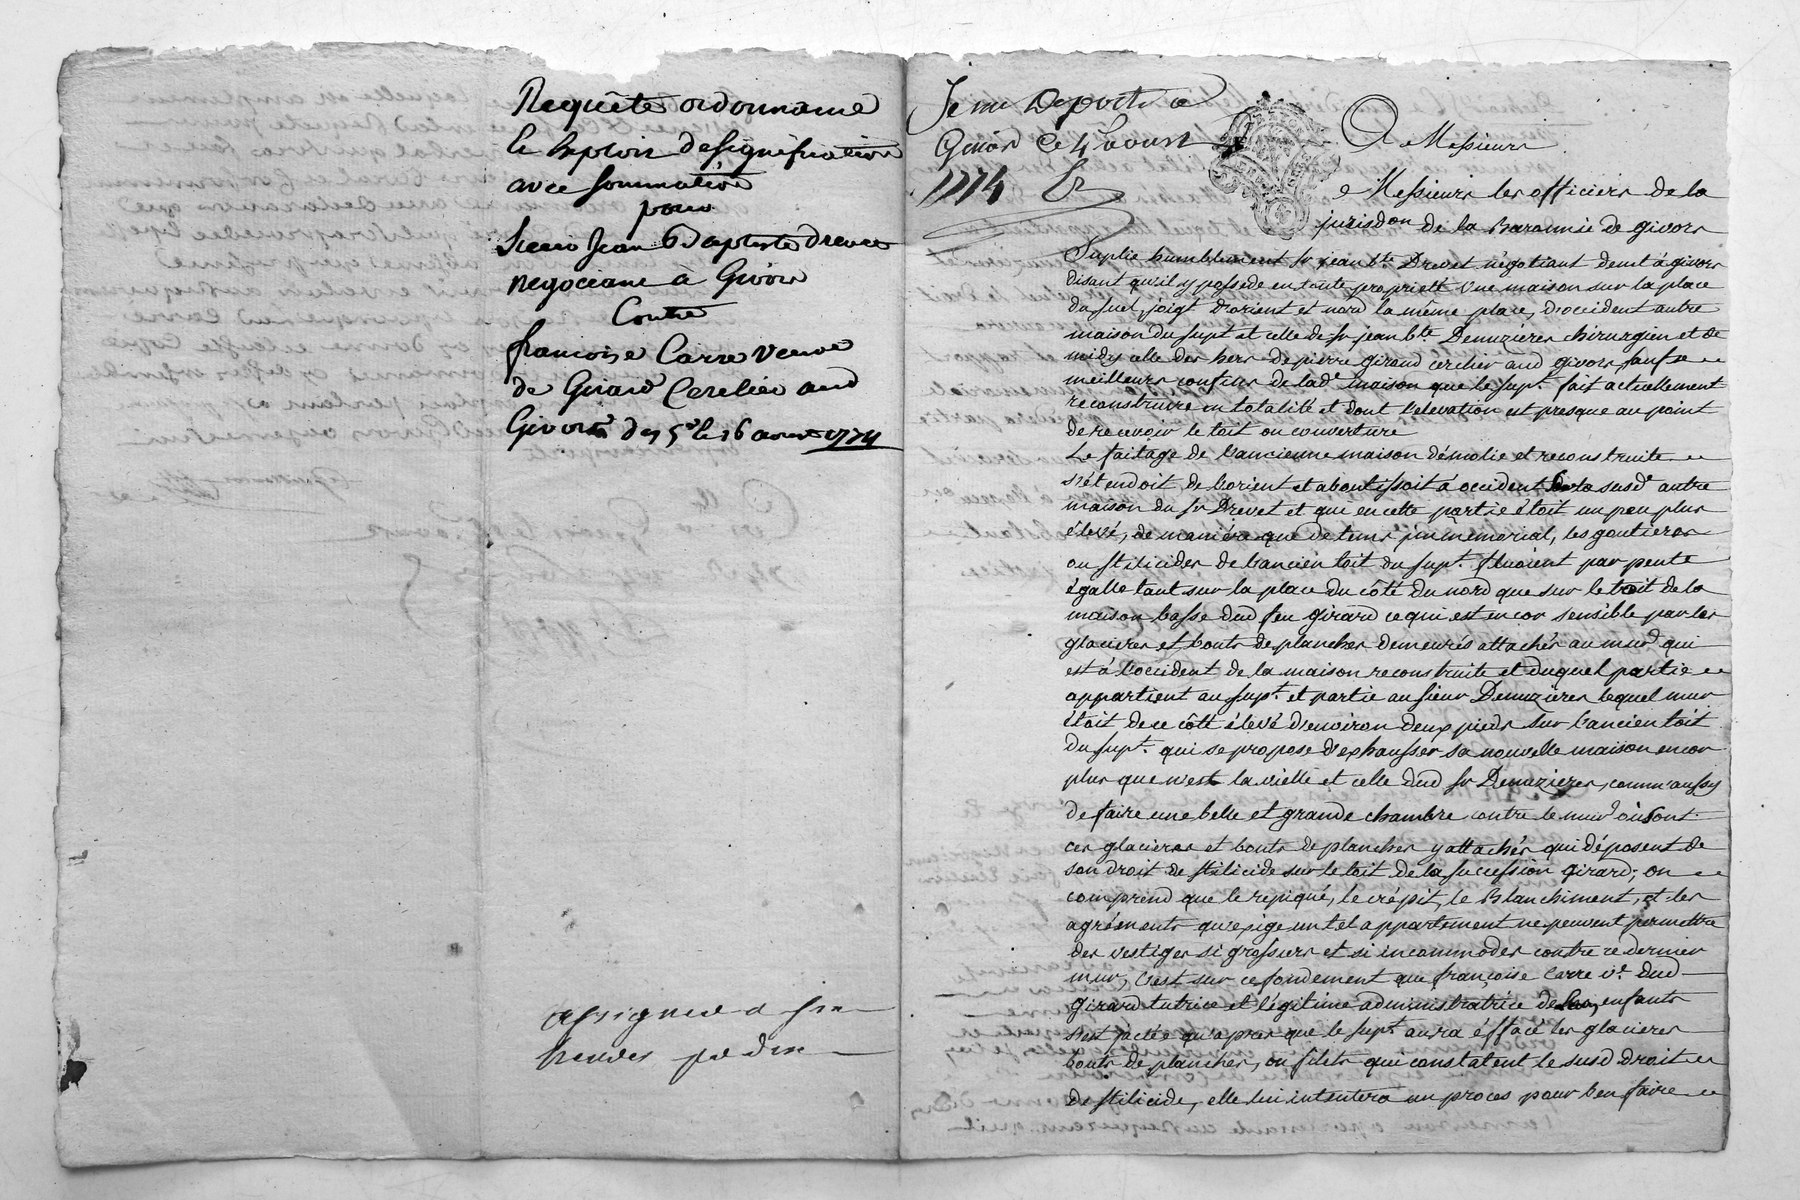 Requête ordonnance
& Exploit de signification
avec sommation
pour
Sieur Jean Baptiste Drevet
negociant a Givors
Contre
francoise Carre veuve
de Girard Cerclier aud
Givors du 5e le 16 aoust 1774
assignée a six
heures
Soit
Givors ce 4 aoust
1774
A Messieurs
Messieurs les officiers de la
jurisdon de la Baronnie de givors
Suplie humblement sr jean bte Drevet négotiant demt à givors
disant qu'il y possede en toute propriett une maison sur la place
du suel, joigt d'orient et nord la même place, d'occident autre
maison du supt et celle de sr jean bte Denuzières chirurgien et de
midy celle des hers de pierre girard cerclier aud givors, sauf se
meilleurs confins de lade maison que le supt fait actuellement
reconstruire en totalité et dont l'elevation est presque au point
de recevoir le toit ou couverture
Le faitage de l'ancienne maison démolie et reconstruite
s'étendoit de l'orient et aboutissoit à occident la susde autre
maison du sr Drevet et que en cette partie étoit un peu plus
élevé, de manière que de tems jmmémorial, les goutieres
ou stilicides de l'ancien toit du supt fluoient par pente
égalle tant sur la place du côté du nord que sur le toit de la
maison basse dud feu girard ce qui est encor sensible par les
glacieres et bouts de planches demeurés attachés au mur qui
est à l'occident de la maison reconstruite et duquel partie
appartient au supt et partie au sieur Denuzières lequel mur
étoit de ce côtt élevé d'environ deux pieds sur l'ancien toit
du supt qui se propose d'exhausser sa nouvelle maison encor
plus que n'est la vielle et celle dud sr Denuzieres, comm'aussy
de faire une belle et grande chambre contre le mur où sont
ces glacieres et bouts de planches y attachés qui déposent de
son droit de stilicide sur le toit de la succession girard; on
comprend que le repiqué, le crépit, le Blanchiment, et les
agréments qu'exige un tel appartement ne peuvent permettre
des vestiges si grossiers et si incommodes contre ce dernier
mur, c'est sur ce fondement que françoise Carre ve dud
girard tutrice et légitime administratrice de ses enfants
s'est jactée qu'apres que le supt aura effacé les glacieres
bouts de planches, ou filets qui constatent le susd droit
de stilicide, elle lui intentera un proces pour l'en faire